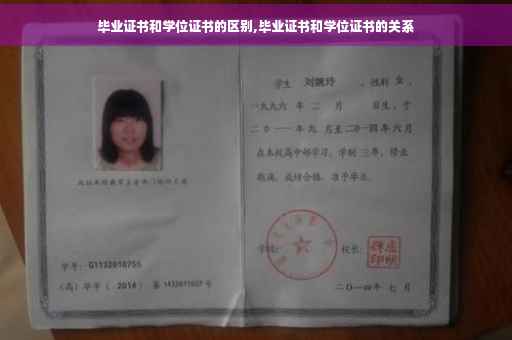 毕业证书和学位证书的区别,毕业证书和学位证书的关系
学生 刘婉玲 ,性别 女 ,
一九九六 年 二 月 日生,于
二〇一一年九 月至二〇一四年六月
在本校高中部学习,学制 三年,修业
期满,成绩合格,准予毕业。
学校: 校长:
学号: G1132010755
(高)毕字( 2014 )第 1432011027 号
二〇一四年 七 月